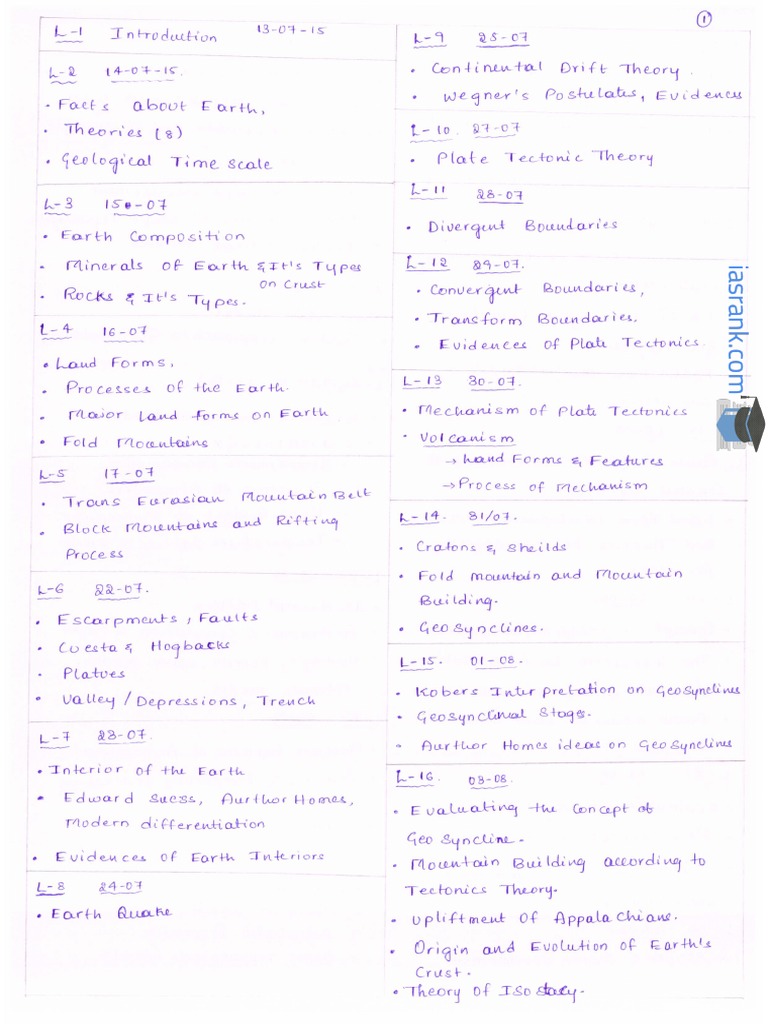 1
L-1 Introduction 13-07-15
L-2 14-07-15.
• Facts about Earth,
• Theories (8)
• Geological Time scale
L-3 15-07
• Earth Composition
• Minerals of Earth & It's Types
on Crust
• Rocks & It's Types.
L-4 16-07
• Land Forms,
• Processes of the Earth.
• Major Land forms on Earth
• Fold Mountains
L-5 17-07
• Trans Eurasian Mountain Belt
• Block Mountains and Rifting
Process
L-6 22-07.
• Escarpments, Faults
• Cuesta & Hogbacks
• Platues
• Valley / Depressions, Trench
L-7 23-07.
• Interior of the Earth
• Edward Suess, Aurthor Homes,
Modern differentiation
• Evidences of Earth Interiors
L-8 24-07
• Earth Quake
L-9 25-07
• Continental Drift Theory.
• Wegner's Postulates, Evidences
L-10. 27-07
• Plate Tectonic Theory
L-11 28-07
• Divergent Boundaries
L-12 29-07.
• Convergent Boundaries,
• Transform Boundaries.
• Evidences of Plate Tectonics.
L-13 30-07.
• Mechanism of Plate Tectonics
• Volcanism
→ Land Forms & Features
→ Process of Mechanism
L-14. 31/07.
• Cratons & Sheilds
• Fold mountain and Mountain
Building.
• Geosynclines.
L-15. 01-08.
• Kobers Interpretation on Geosynclines
• Geosynclinal Stages.
• Aurthor Homes ideas on Geosynclines
L-16. 03-08.
• Evaluating the Concept of
Geo Syncline.
• Mountain Building according to
Tectonics Theory.
• Upliftment of Appalachians.
• Origin and Evolution of Earth's
Crust.
• Theory of Isostacy.
iasrank.com